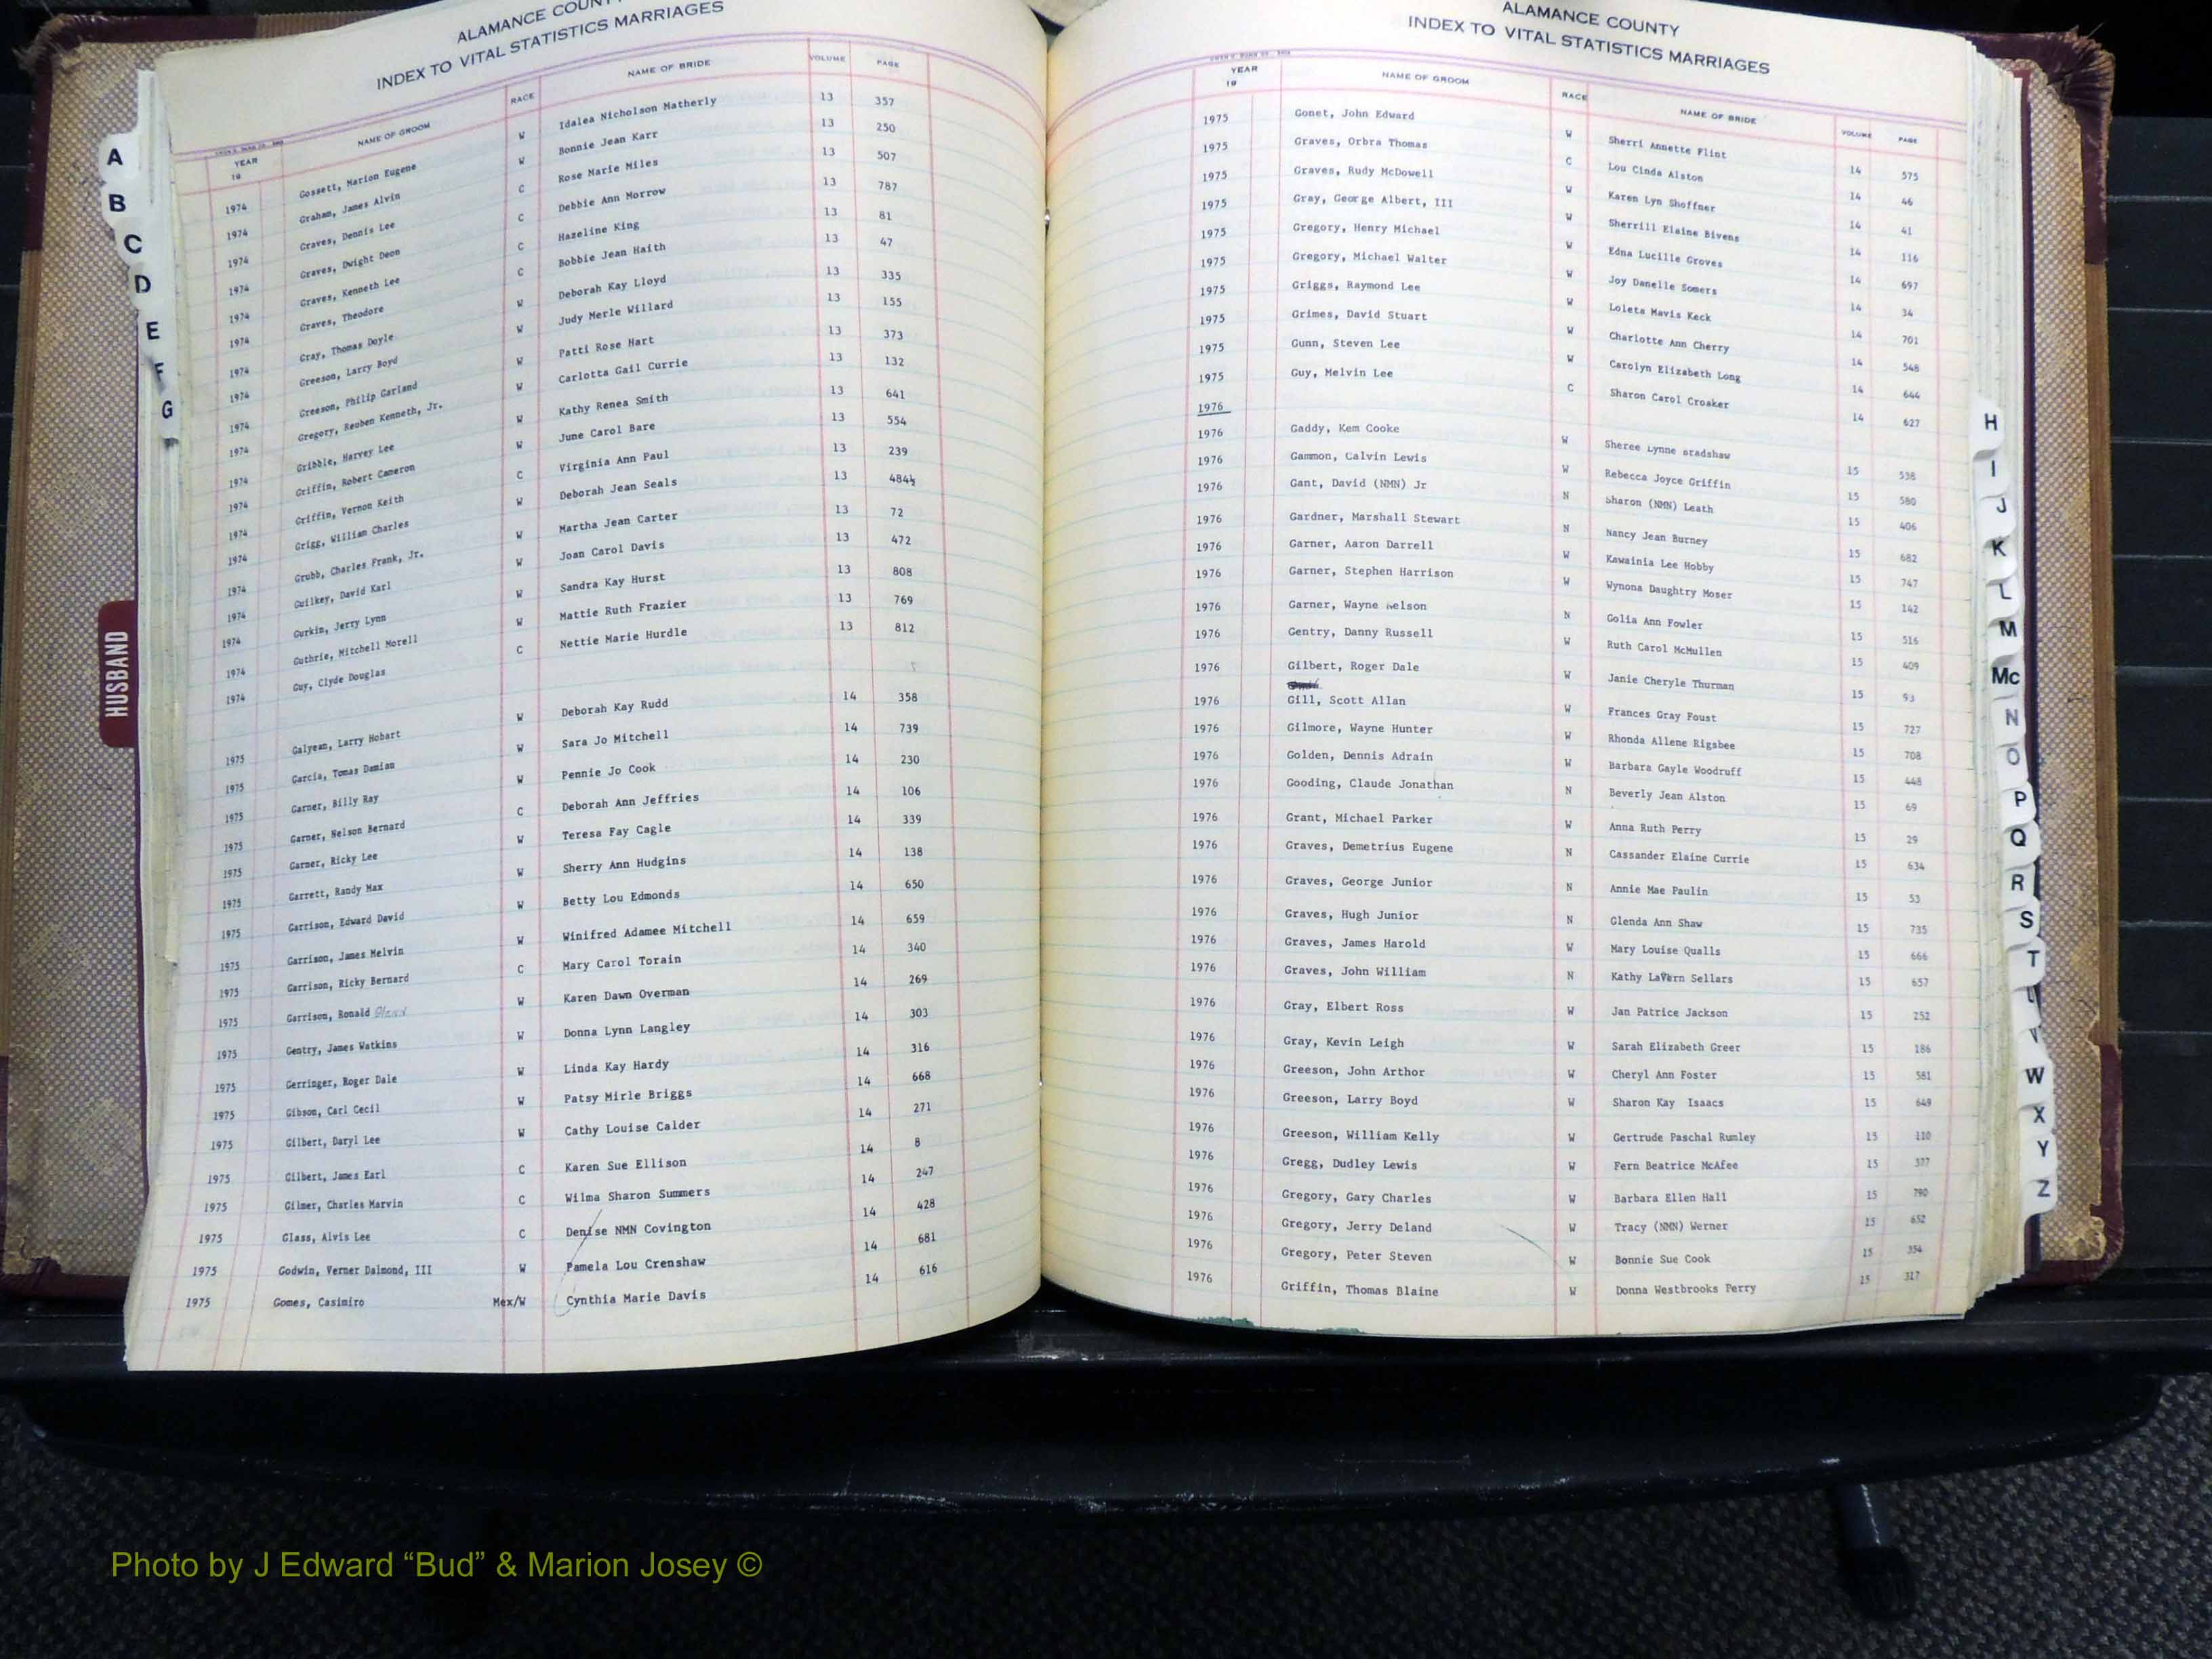 ALAMANCE COUNTY
INDEX TO VITAL STATISTICS MARRIAGES
YEAR 19 NAME OF GROOM RACE NAME OF BRIDE VOLUME PAGE
1974 Gossett, Marion Eugene W Idalea Nicholson Matherly 13 357
1974 Graham, James Alvin W Bonnie Jean Karr 13 250
1974 Graves, Dennis Lee C Rose Marie Miles 13 507
1974 Graves, Dwight Deon C Debbie Ann Morrow 13 787
1974 Graves, Kenneth Lee C Hazeline King 13 81
1974 Graves, Theodore C Bobbie Jean Haith 13 47
1974 Gray, Thomas Doyle W Deborah Kay Lloyd 13 335
1974 Greeson, Larry Boyd W Judy Merle Willard 13 155
1974 Greeson, Philip Garland W Patti Rose Hart 13 373
1974 Gregory, Reuben Kenneth, Jr. W Carlotta Gail Currie 13 132
1974 Gribble, Harvey Lee W Kathy Renea Smith 13 641
1974 Griffin, Robert Cameron W June Carol Bare 13 554
1974 Griffin, Vernon Keith C Virginia Ann Paul 13 239
1974 Grigg, William Charles W Deborah Jean Seals 13 484½
1974 Grubb, Charles Frank, Jr. W Martha Jean Carter 13 72
1974 Guilkey, David Karl W Joan Carol Davis 13 472
1974 Gurkin, Jerry Lynn W Sandra Kay Hurst 13 808
1974 Guthrie, Mitchell Morell W Mattie Ruth Frazier 13 769
1974 Guy, Clyde Douglas C Nettie Marie Hurdle 13 812
1975 Galyean, Larry Hobart W Deborah Kay Rudd 14 358
1975 Garcia, Tomas Damian W Sara Jo Mitchell 14 739
1975 Garner, Billy Ray W Pennie Jo Cook 14 230
1975 Garner, Nelson Bernard C Deborah Ann Jeffries 14 106
1975 Garner, Ricky Lee W Teresa Fay Cagle 14 339
1975 Garrett, Randy Max W Sherry Ann Hudgins 14 138
1975 Garrison, Edward David W Betty Lou Edmonds 14 650
1975 Garrison, James Melvin W Winifred Adamee Mitchell 14 659
1975 Garrison, Ricky Bernard C Mary Carol Torain 14 340
1975 Garrison, Ronald Glenn W Karen Dawn Overman 14 269
1975 Gentry, James Watkins W Donna Lynn Langley 14 303
1975 Gerringer, Roger Dale W Linda Kay Hardy 14 316
1975 Gibson, Carl Cecil W Patsy Mirle Briggs 14 668
1975 Gilbert, Daryl Lee W Cathy Louise Calder 14 271
1975 Gilbert, James Earl C Karen Sue Ellison 14 8
1975 Gilmer, Charles Marvin C Wilma Sharon Summers 14 247
1975 Glass, Alvis Lee C Denise NMN Covington 14 428
1975 Godwin, Verner Dalmond, III W Pamela Lou Crenshaw 14 681
1975 Gomes, Casimiro Mex/W Cynthia Marie Davis 14 616
ALAMANCE COUNTY
INDEX TO VITAL STATISTICS MARRIAGES
YEAR 19 NAME OF GROOM RACE NAME OF BRIDE VOLUME PAGE
1975 Gonet, John Edward W Sherri Annette Flint 14 575
1975 Graves, Orbra Thomas C Lou Cinda Alston 14 46
1975 Graves, Rudy McDowell W Karen Lyn Shoffner 14 41
1975 Gray, George Albert, III W Sherrill Elaine Bivens 14 116
1975 Gregory, Henry Michael W Edna Lucille Groves 14 697
1975 Gregory, Michael Walter W Joy Danelle Somers 14 34
1975 Griggs, Raymond Lee W Loleta Mavis Keck 14 701
1975 Grimes, David Stuart W Charlotte Ann Cherry 14 548
1975 Gunn, Steven Lee W Carolyn Elizabeth Long 14 644
1975 Guy, Melvin Lee C Sharon Carol Croaker 14 627
1976
1976 Gaddy, Kem Cooke W Sheree Lynne Bradshaw 15 538
1976 Gammon, Calvin Lewis W Rebecca Joyce Griffin 15 580
1976 Gant, David (NMN) Jr N Sharon (NMN) Leath 15 406
1976 Gardner, Marshall Stewart N Nancy Jean Burney 15 682
1976 Garner, Aaron Darrell W Kawainia Lee Hobby 15 747
1976 Garner, Stephen Harrison W Wynona Daughtry Moser 15 142
1976 Garner, Wayne Nelson N Golia Ann Fowler 15 516
1976 Gentry, Danny Russell W Ruth Carol McMullen 15 409
1976 Gilbert, Roger Dale W Janie Cheryle Thurman 15 93
1976 Gill, Scott Allan W Frances Gray Foust 15 727
1976 Gilmore, Wayne Hunter W Rhonda Allene Rigsbee 15 708
1976 Golden, Dennis Adrain W Barbara Gayle Woodruff 15 448
1976 Gooding, Claude Jonathan N Beverly Jean Alston 15 69
1976 Grant, Michael Parker W Anna Ruth Perry 15 29
1976 Graves, Demetrius Eugene N Cassander Elaine Currie 15 634
1976 Graves, George Junior N Annie Mae Paulin 15 53
1976 Graves, Hugh Junior N Glenda Ann Shaw 15 735
1976 Graves, James Harold W Mary Louise Qualls 15 666
1976 Graves, John William N Kathy LaVern Sellars 15 657
1976 Gray, Elbert Ross W Jan Patrice Jackson 15 252
1976 Gray, Kevin Leigh W Sarah Elizabeth Greer 15 186
1976 Greeson, John Arthor W Cheryl Ann Foster 15 581
1976 Greeson, Larry Boyd W Sharon Kay Isaacs 15 649
1976 Greeson, William Kelly W Gertrude Paschal Rumley 15 110
1976 Gregg, Dudley Lewis W Fern Beatrice McAfee 15 377
1976 Gregory, Gary Charles W Barbara Ellen Hall 15 790
1976 Gregory, Jerry Deland W Tracy (NMN) Werner 15 652
1976 Gregory, Peter Steven W Bonnie Sue Cook 15 354
1976 Griffin, Thomas Blaine W Donna Westbrooks Perry 15 317
A
B
C
D
E
F
G
HUSBAND
H
I
J
K
L
M
Mc
N
O
P
Q
R
S
T
U
V
W
X
Y
Z
Photo by J Edward “Bud” & Marion Josey ©